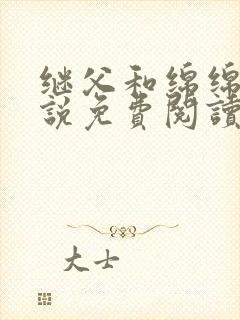 继父和绵绵
説免費閱讀
大士